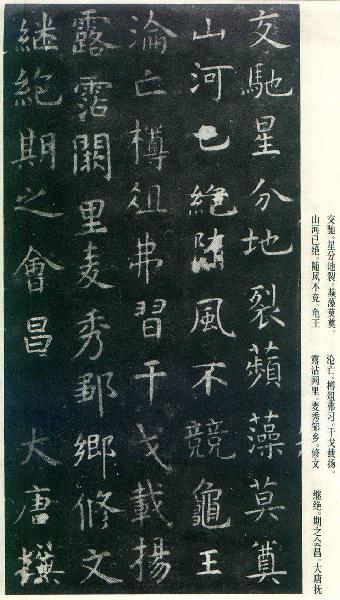 交馳星分地裂蘋藻莫奠
山河已絕隨風不競龜王
淪亡樽俎弗習干戈載揚
露霑闕里麥秀鄒鄉修文
繼絕期之會昌 大唐撫
交驰。星分地裂。蘋藻莫奠。
山河已绝。随风不竞。龟王
沦亡。樽俎弗习。干戈载扬。
露沾阙里。麦秀邹乡。修文
继绝。期之会昌。大唐抚